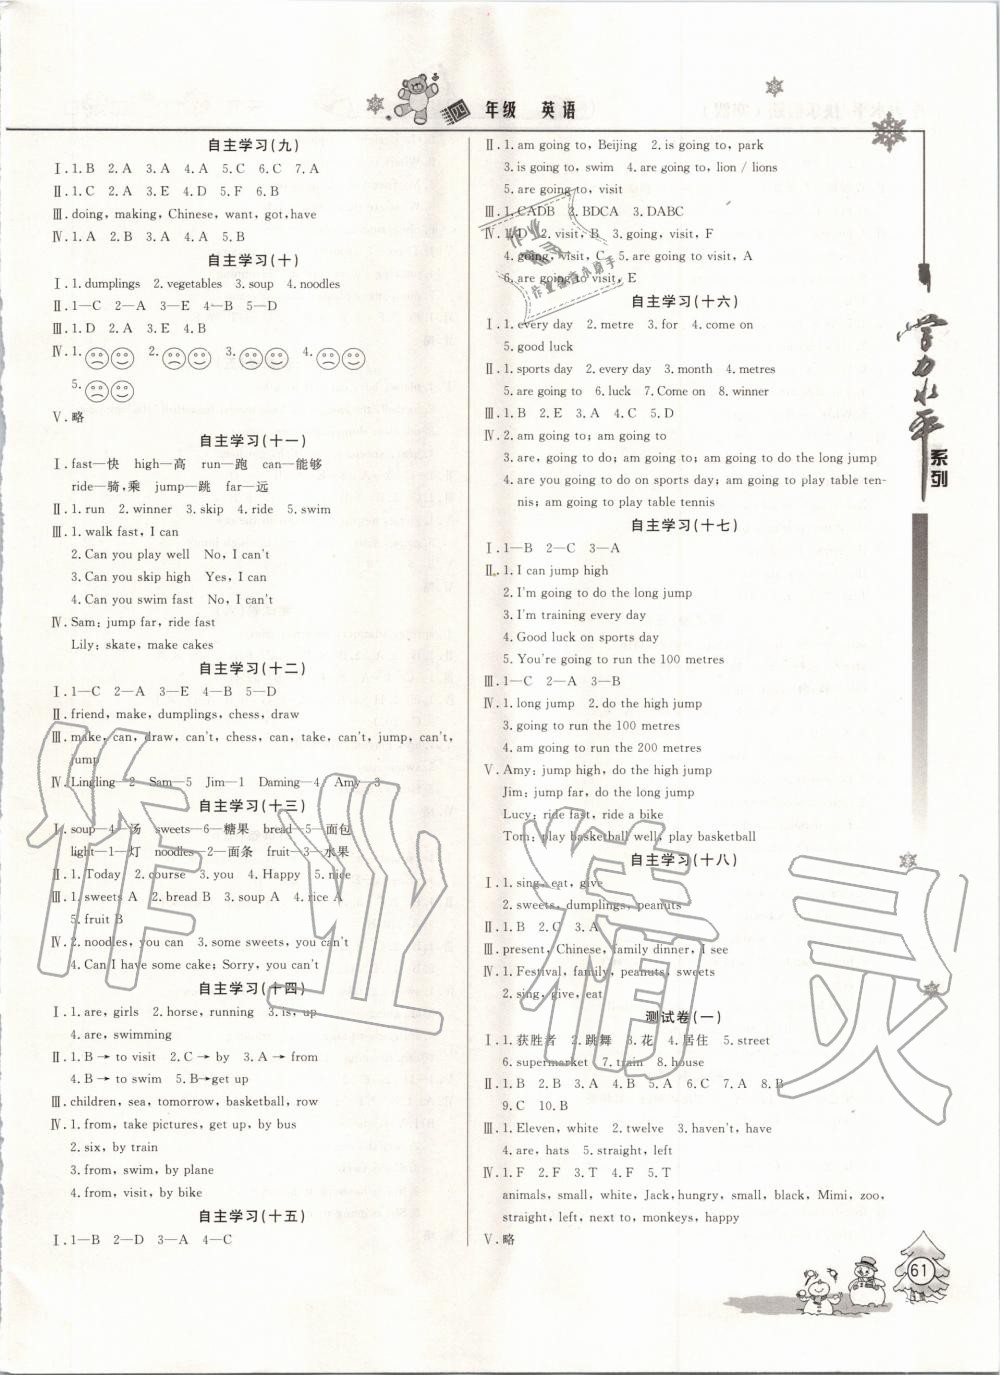 四 年级 英语
自主学习(九)
Ⅰ.1.B 2.A 3.A 4.A 5.C 6.C 7.A
Ⅱ.1.C 2.A 3.E 4.D 5.F 6.B
Ⅲ.doing, making, Chinese, want, got, have
Ⅳ.1.A 2.B 3.A 4.A 5.B
自主学习(十)
Ⅰ.1.dumplings 2.vegetables 3.soup 4.noodles
Ⅱ.1—C 2—A 3—E 4—B 5—D
Ⅲ.1.D 2.A 3.E 4.B
Ⅳ.1. 2. 3. 4.
5.
Ⅴ.略
自主学习(十一)
Ⅰ.fast—快 high—高 run—跑 can—能够
ride—骑,乘 jump—跳 far—远
Ⅱ.1.run 2.winner 3.skip 4.ride 5.swim
Ⅲ.1.walk fast, I can
2.Can you play well No, I can't
3.Can you skip high Yes, I can
4.Can you swim fast No, I can't
Ⅳ.Sam: jump far, ride fast
Lily: skate, make cakes
自主学习(十二)
Ⅰ.1—C 2—A 3—E 4—B 5—D
Ⅱ.friend, make, dumplings, chess, draw
Ⅲ.make, can, draw, can't, chess, can, take, can't, jump, can't,
jump
Ⅳ.Lingling—2 Sam—5 Jim—1 Daming—4 Amy—3
自主学习(十三)
Ⅰ.soup—4—汤 sweets—6—糖果 bread—5—面包
light—1—灯 noodles—2—面条 fruit—3—水果
Ⅱ.1.Today 2.course 3.you 4.Happy 5.nice
Ⅲ.1.sweets A 2.bread B 3.soup A 4.rice A
5.fruit B
Ⅳ.2.noodles, you can 3.some sweets, you can't
4.Can I have some cake; Sorry, you can't
自主学习(十四)
Ⅰ.1.are, girls 2.horse, running 3.is, up
4.are, swimming
Ⅱ.1.B→to visit 2.C→by 3.A→from
4.B→to swim 5.B→get up
Ⅲ.children, sea, tomorrow, basketball, row
Ⅳ.1.from, take pictures, get up, by bus
2.six, by train
3.from, swim, by plane
4.from, visit, by bike
自主学习(十五)
Ⅰ.1—B 2—D 3—A 4—C
Ⅱ.1.am going to, Beijing 2.is going to, park
3.is going to, swim 4.are going to, lion / lions
5.are going to, visit
Ⅲ.1.CADB 2.BDCA 3.DABC
Ⅳ.1.D 2.visit, B 3.going, visit, F
4.going, visit, C 5.are going to visit, A
6.are going to visit, E
自主学习(十六)
Ⅰ.1.every day 2.metre 3.for 4.come on
5.good luck
Ⅱ.1.sports day 2.every day 3.month 4.metres
5.are going to 6.luck 7.Come on 8.winner
Ⅲ.1.B 2.E 3.A 4.C 5.D
Ⅳ.2.am going to; am going to
3.are, going to do; am going to; am going to do the long jump
4.are you going to do on sports day; am going to play table ten-
nis; am going to play table tennis
自主学习(十七)
Ⅰ.1—B 2—C 3—A
Ⅱ.1.I can jump high
2.I'm going to do the long jump
3.I'm training every day
4.Good luck on sports day
5.You're going to run the 100 metres
Ⅲ.1—C 2—A 3—B
Ⅳ.1.long jump 2.do the high jump
3.going to run the 100 metres
4.am going to run the 200 metres
Ⅴ.Amy: jump high, do the high jump
Jim: jump far, do the long jump
Lucy: ride fast, ride a bike
Tom: play basketball well, play basketball
自主学习(十八)
Ⅰ.1.sing, eat, give
2.sweets, dumplings, peanuts
Ⅱ.1.B 2.C 3.A
Ⅲ.present, Chinese, family dinner, I see
Ⅳ.1.Festival, family, peanuts, sweets
2.sing, give, eat
测试卷(一)
Ⅰ.1.获胜者 2.跳舞 3.花 4.居住 5.street
6.supermarket 7.train 8.house
Ⅱ.1.B 2.B 3.A 4.B 5.A 6.C 7.A 8.B
9.C 10.B
Ⅲ.1.Eleven, white 2.twelve 3.haven't, have
4.are, hats 5.straight, left
Ⅳ.1.F 2.F 3.T 4.F 5.T
animals, small, white, Jack, hungry, small, black, Mimi, zoo,
straight, left, next to, monkeys, happy
Ⅴ.略
学力水平
系列
61
作业精灵